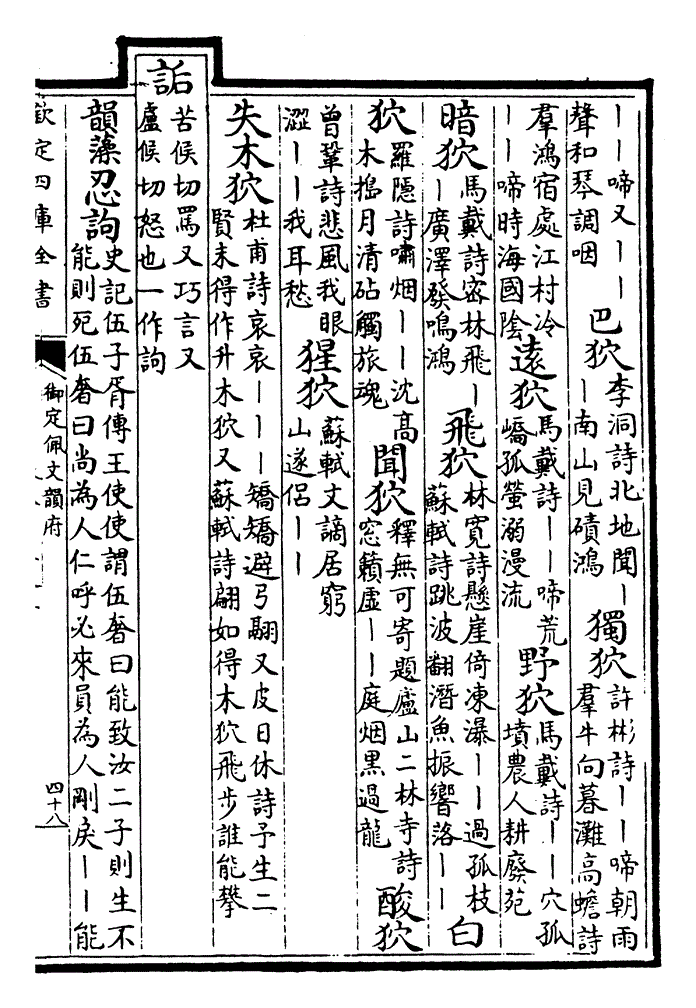 丨丨啼又丨丨聲和琴調咽巴狖李洞詩北地聞丨丨南山見磧鴻獨狖許彬詩丨丨啼朝雨羣牛向暮灘高蟾詩
羣鴻宿處江村冷丨丨啼時海國陰遠狖馬戴詩丨丨啼荒嶠孤螢溺漫流野狖馬戴詩丨丨穴孤墳農人耕廢苑
暗狖馬戴詩密林飛丨丨廣澤發鳴鴻飛狖林寛詩懸崖倚凍瀑丨丨過孤枝蘇軾詩跳波翻潛魚振響落丨丨白
狖羅隱詩嘯烟丨丨沈高木搗月清砧觸旅魂聞狖釋無可寄題廬山二林寺詩窓籟虛丨丨庭烟黒過龍酸狖
曾鞏詩悲風我眼澀丨丨我耳愁猩狖蘇軾文謫居窮山遂侶丨丨
失木狖杜甫詩哀哀丨丨丨矯矯避弓翮又皮日休詩予生二賢末得作升木狖又蘇軾詩翩如得木狖飛步誰能攀
詬苦候切罵又巧言又盧候切怒也一作訽
韻藻忍訽史記伍子胥傳王使使謂伍奢曰能致汝二子則生不能則死伍奢曰尚為人仁呼必來員為人剛戾丨丨能
欽定四庫全書
御定佩文韻府
四十八